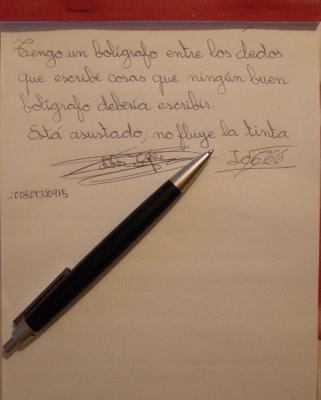 Tengo un bolígrafo entre los dedos
que escribe cosas que ningún buen
bolígrafo debería escribir.
Está asustado; no fluye la tinta.